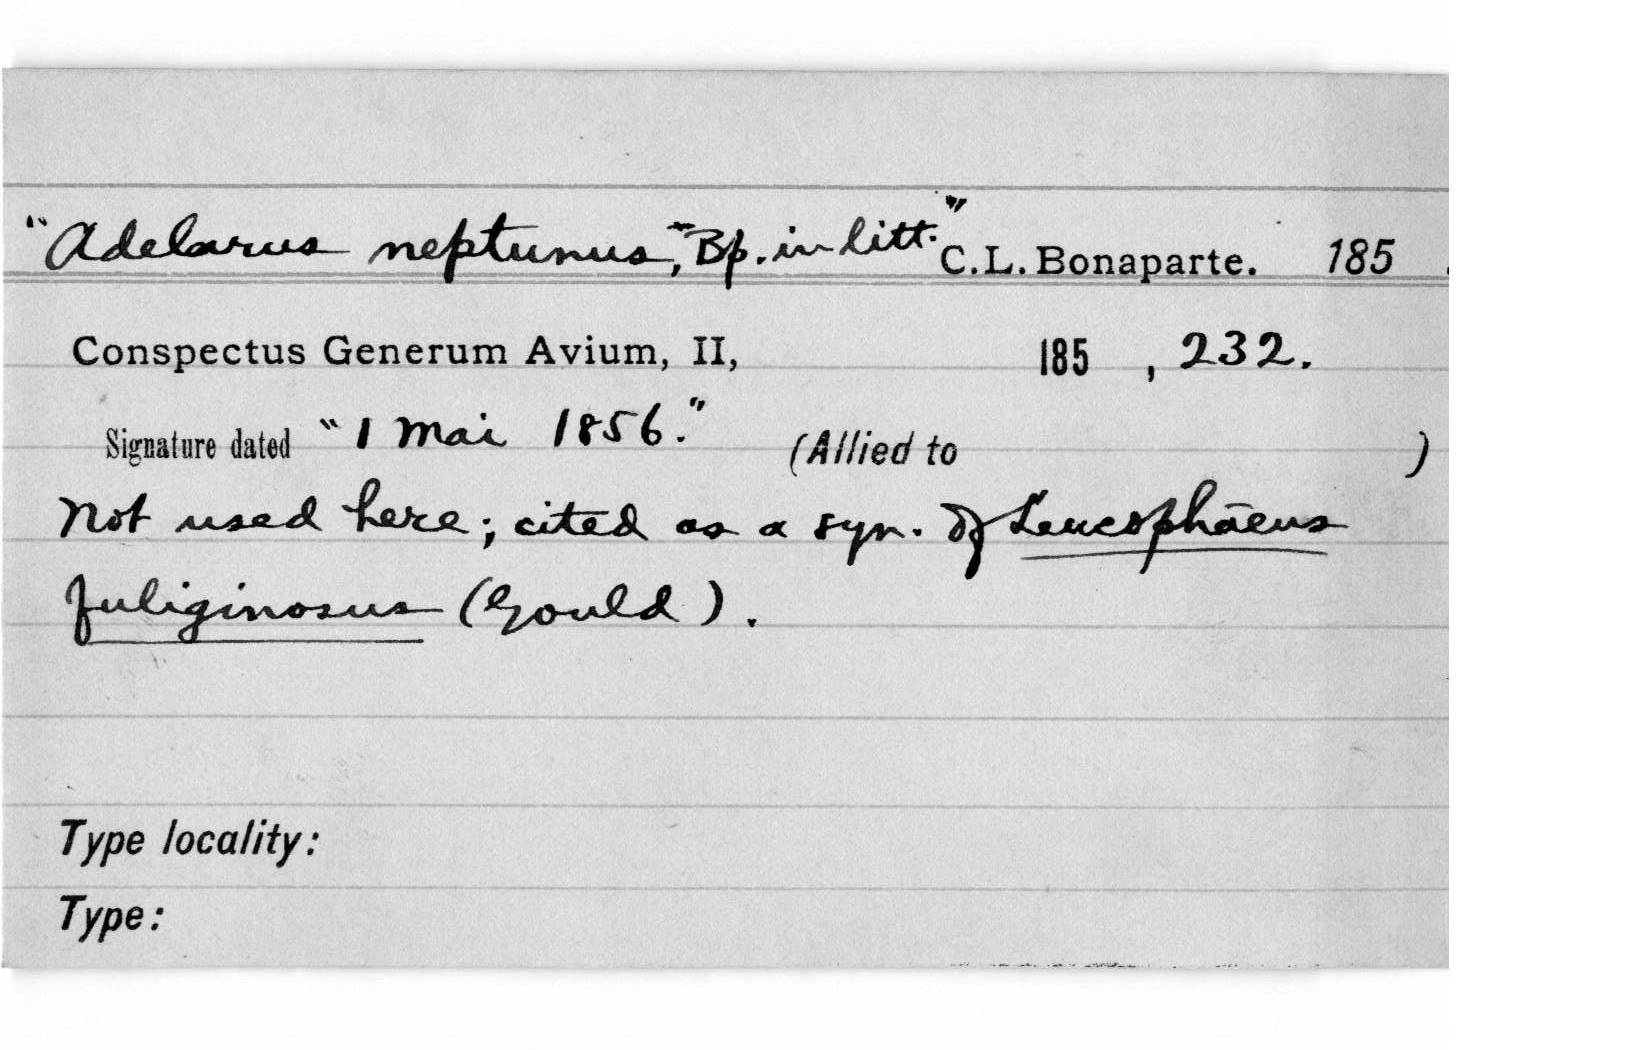 "Adelarus neptunus," Bp. in litt." C.L. Bonaparte. 185 .
Conspectus Generum Avium, II, 185 , 232.
Signature dated "1 Mai 1856." (Allied to )
Not used here; cited as a syn. of Leucophaeus
fuliginosus (Gould).
Type locality:
Type: